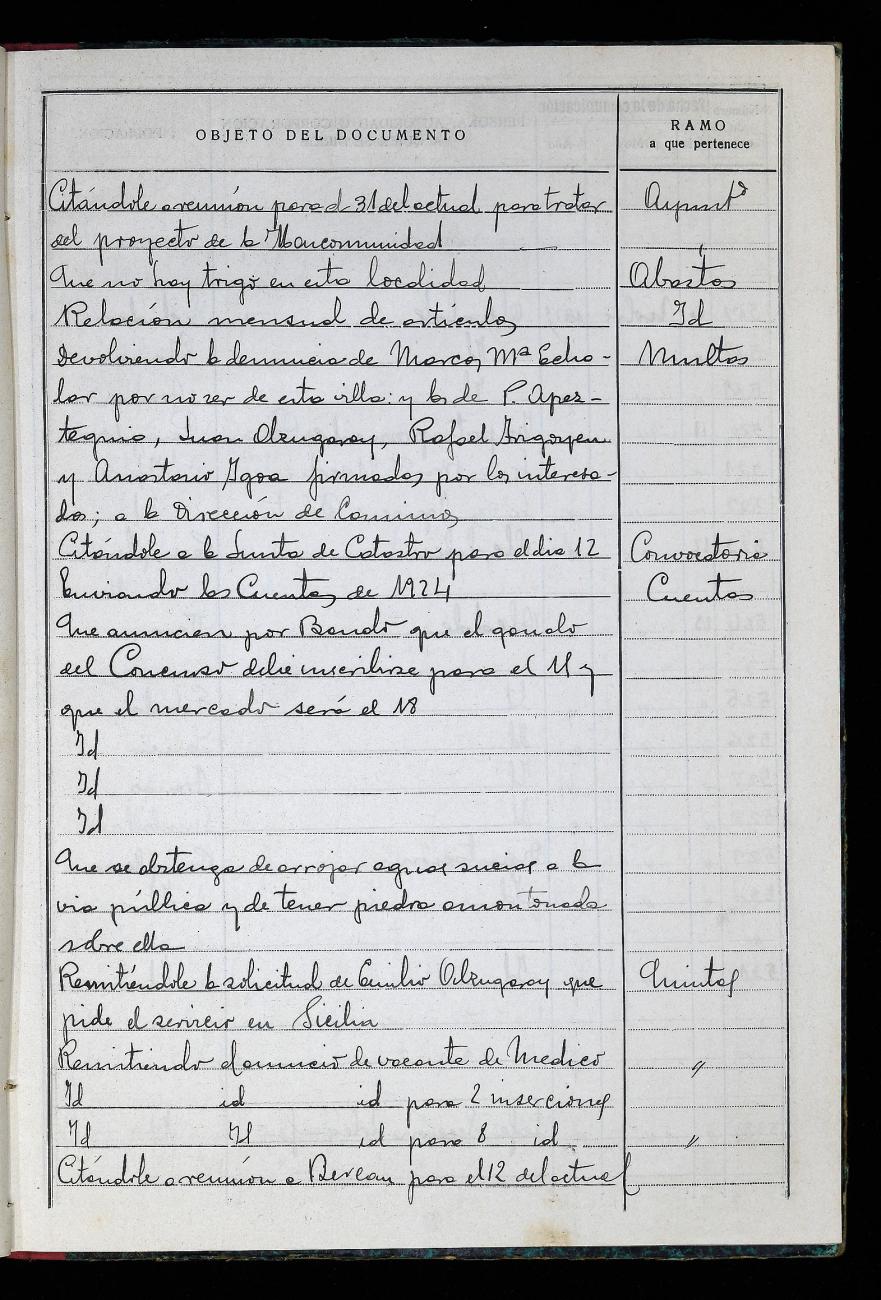 OBJETO DEL DOCUMENTO
RAMO
a que pertenece
Citándole a reunión para el 31 del actual para tratar Ayuntº
del proyecto de la Mancomunidad "
Que no hay trigo en esta localidad Abastos
Relación mensual de artículos Id
Devolviendo la denuncia de Marcos Mª Echa- Multas
lar por no ser de esta villa: y las de P. Apez-
teguia, Juan Olzugaray, Rafael Irigoyen
y Anastasio Igoa firmadas por los interesa-
dos; a la Dirección de Caminos
Citándole a la Junta de Catastro para el dia 12 Convocatoria
Enviando las Cuentas de 1924 Cuentas
Que anuncien por Bando que el ganado
del Concurso debe inscribirse para el 11 y
que el mercado será el 18
Id
Id
Id
Que se abstenga de arrojar aguas sucias a la
via pública y de tener piedra amontonada
sobre ella
Remitiéndole la solicitud de Emilio Olzugaray que Quintas
pide el servicio en Sicilia
Remitiendo el anuncio de vacante de Medico "
Id id id para 2 inserciones
Id Id id para 8 id "
Citándole a reunión a para el 12 del actual